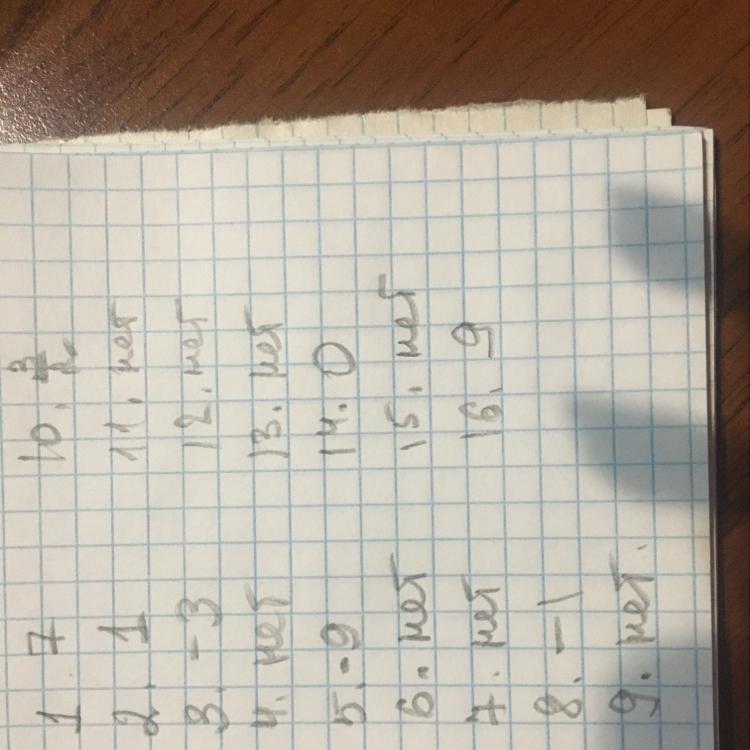 1. 7
2. 1
3. -3
4. нет
5. -9
6. нет
7. нет
8. -1
9. нет.
10. 3/2
11. нет
12. нет
13. нет
14. 0
15. нет
16. 9